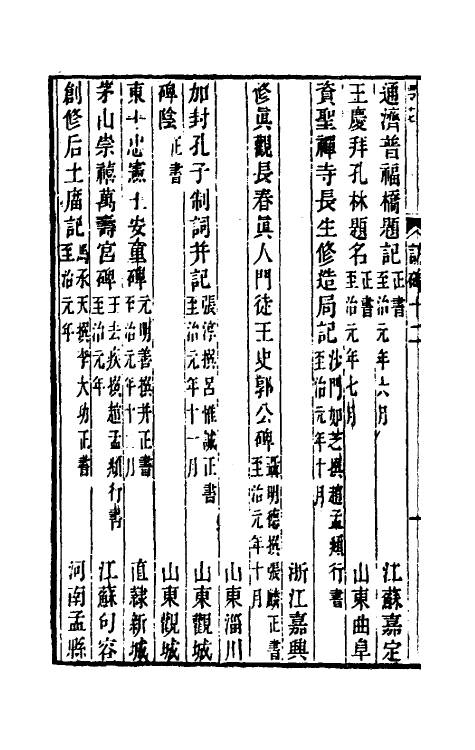 通濟普福橋題記 正書 至治元年六月 江蘇嘉定
王慶拜孔林題名 正書 至治元年七月 山東曲阜
資聖禪寺長生修造局記 沙門如芝撰趙孟頫行書 至治元年十月
浙江嘉興
修眞觀長春眞人門徒王史郭公碑 聶明德撰張麟正書 至治元年十月
山東淄川
加封孔子制詞并記 張淳撰呂惟誠正書 至治元年十一月 山東觀城
碑陰 正書 山東觀城
東十忠憲王安童碑 元明善撰并正書 至治元年十二月 直隸新城
茅山崇禧萬壽宮碑 王去疾撰趙孟頫行書 至治元年 江蘇句容
創修后土廟記 馬承天撰李大功正書 至治元年 河南孟縣
訪碑十二